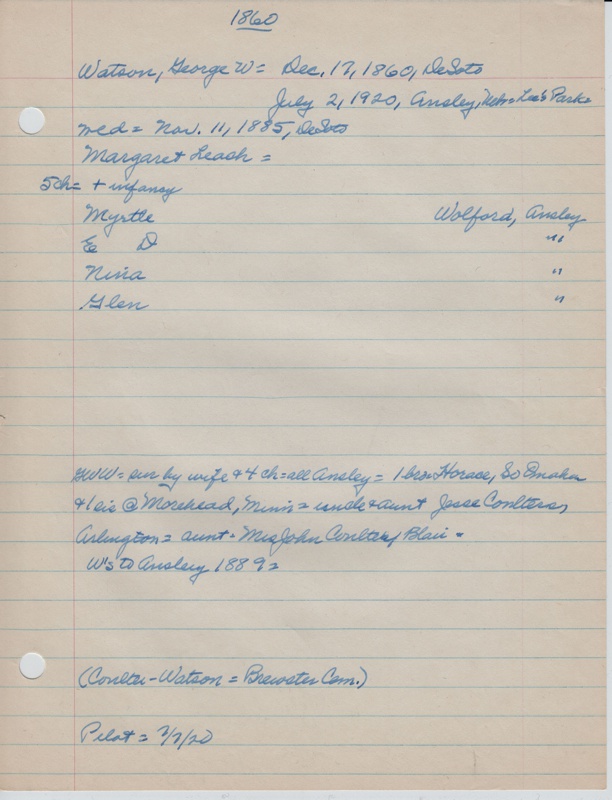 1860
Watson, George W = Dec. 17, 1860, DeSoto
July 2, 1920, Ansley, Neb = Lee's Park =
med = Nov. 11, 1885, DeSoto
Margaret Leach =
5ch = + infancy
Myrtle Wolford, Ansley
E D "
Nina "
Glen "
GWW = sur by wife & 4 ch = all Ansley = 1 bro = Horace, So Omaha
& 1 sis @ Morehead, Minn = uncle & aunt Jesse Coulters,
Arlington = aunt = Mrs John Coulter, Blair =
W's to Ansley 1889 =
(Coulter - Watson = Brewster Cem.)
Pilot = 7/7/20